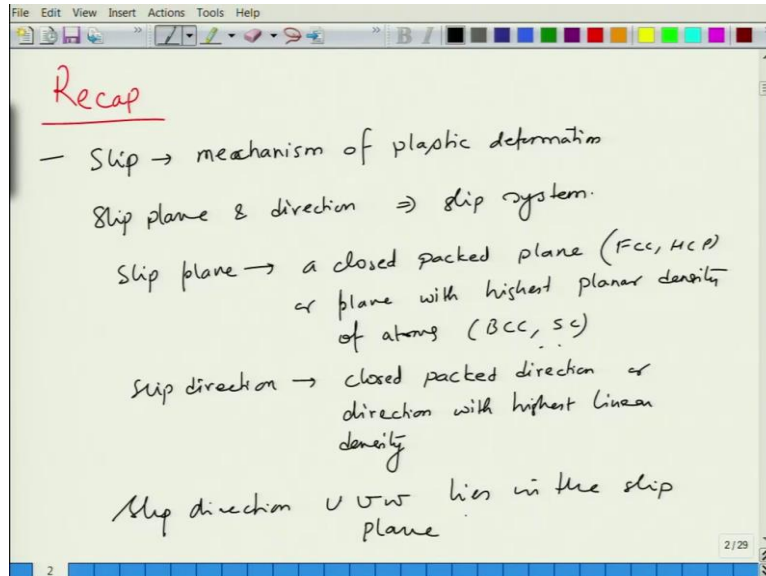 File Edit View Insert Actions Tools Help
Recap
— Slip → mechanism of plastic deformation
Slip plane & direction ⇒ slip system.
Slip plane → a closed packed plane (FCC, HCP)
or plane with highest planar density
of atoms (BCC, SC)
Slip direction → closed packed direction or
direction with highest linear
density
Slip direction u v w lies in the slip
plane
2/29
2